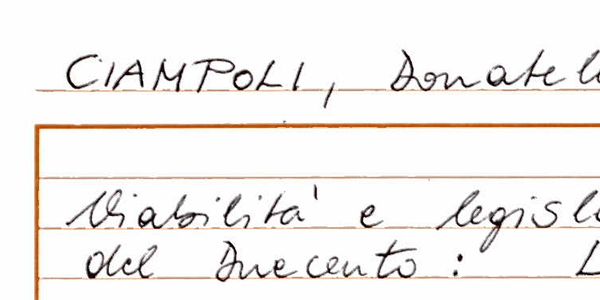 CIAMPOLI, Donatel
Viabilità e legisl
del Duecento: L